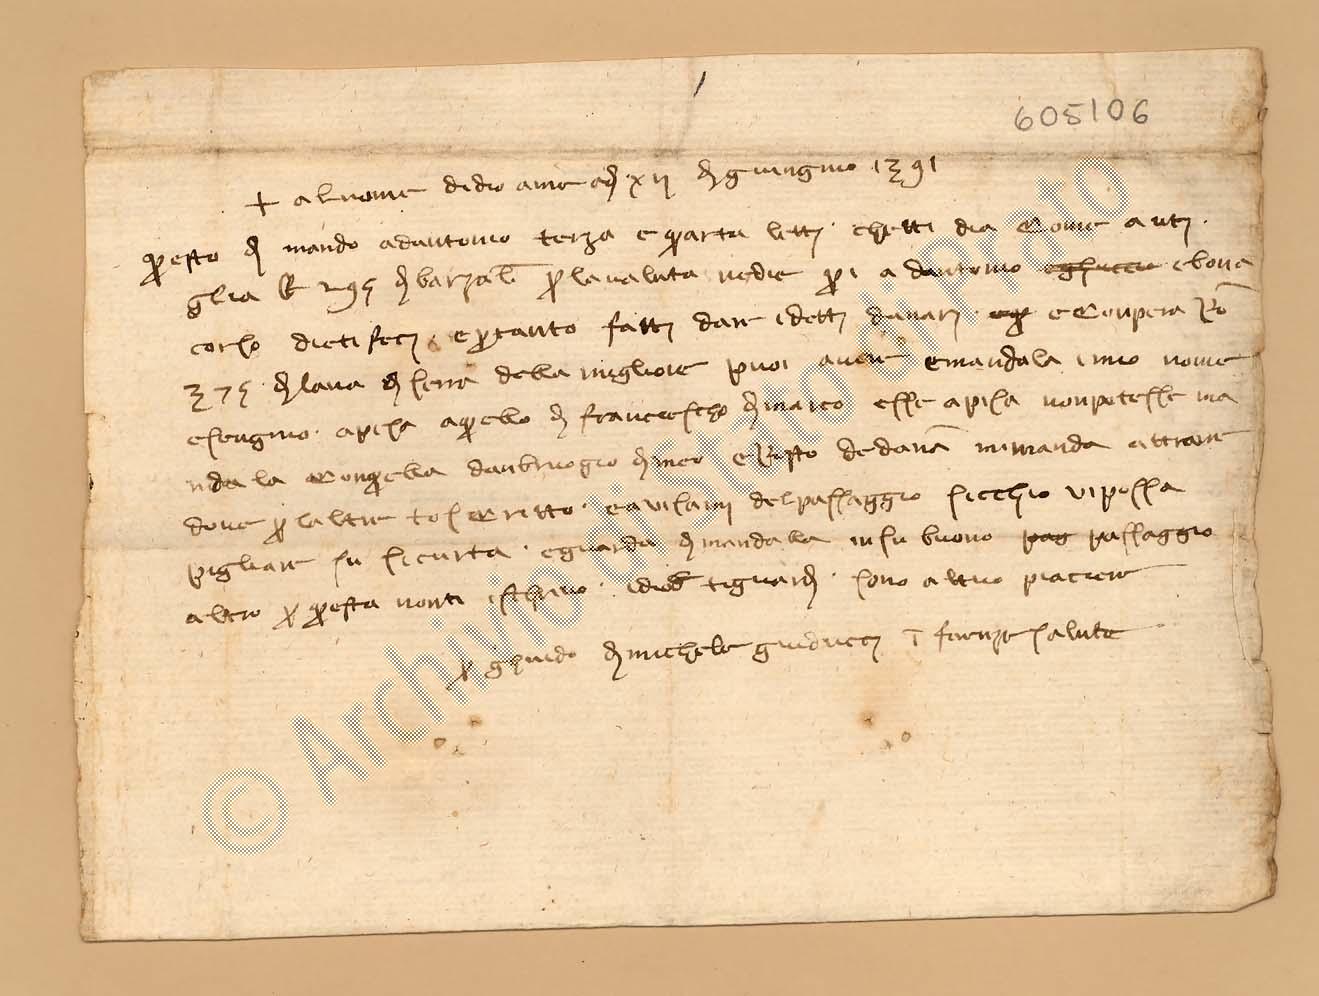 605106
+ al nome di dio ame adi xij di giungnio 1391
questo di mando ad antonio terza e quarta letti chetti dia come avrj
glia
di barzal per la valuta ne die qui a dantonio e bona
corso dietisecj e per tanto fatti dare i detti danarj e conpera
375 di lana di serra della migliore puoi avere e mandala i mio nome
e sengnio a pisa a quello di franciescho di marco esse a pisa non potesse ma
ndala con quella danbruogio di meo e resto de danari mi manda a ttrare
dove per laltre to scritto e avisami del passaggio sicchio vi possa
pigliare su sicurta e guarda di mandalla in su buono pag passaggio
altro per questa non ti iscrivo idio ti guardi sono a tuo piaciere
per ghuido di michele guiducci i firenze salute
© Archivio di Stato di Prato